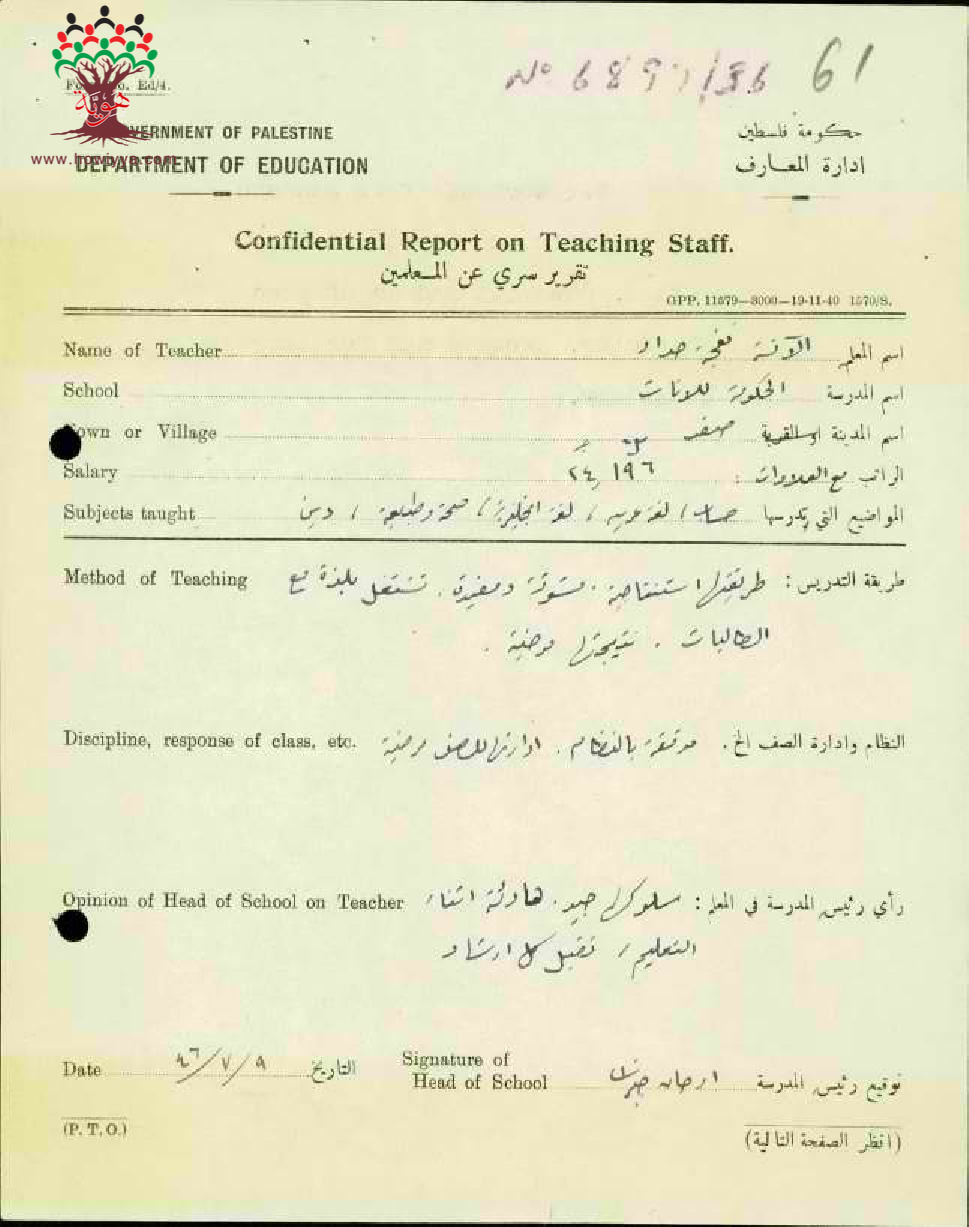 Nº 6897/36 61
Ed/4.
هوية
www.howiyya.com
GOVERNMENT OF PALESTINE
DEPARTMENT OF EDUCATION
حكومة فلسطين
ادارة المعارف
Confidential Report on Teaching Staff.
تقرير سري عن المعلمين
GPP. 11679—3000—19-11-40 1570/S.
Name of Teacher الآنسة حداد اسم المعلم
School الحكومة للاناث اسم المدرسة
Town or Village صفد اسم المدينة او القرية
Salary ٢٤,١٩٦ الراتب مع العلاوات :
Subjects taught المواضيع التي يدرسها حساب / لغة عربية / لغة انجليزية / صحة وطبيعة / دين
Method of Teaching طريقة التدريس : طريقتها استنتاجية . مشوقة ومفيدة . تشتغل بلذة مع
الطالبات . نتيجتها مرضية .
Discipline, response of class, etc. النظام وادارة الصف الخ . موفقة بالنظام . ادارتها للصف مرضية
Opinion of Head of School on Teacher رأي رئيس المدرسة في المعلم : سلوكها جيد . هادئة اثناء
التعليم / تقبل كل ارشاد
Date ٤٦/٧/٩ التاريخ
Signature of
Head of School توقيع رئيس المدرسة
(P. T. O.)
(انظر الصفحة التالية)